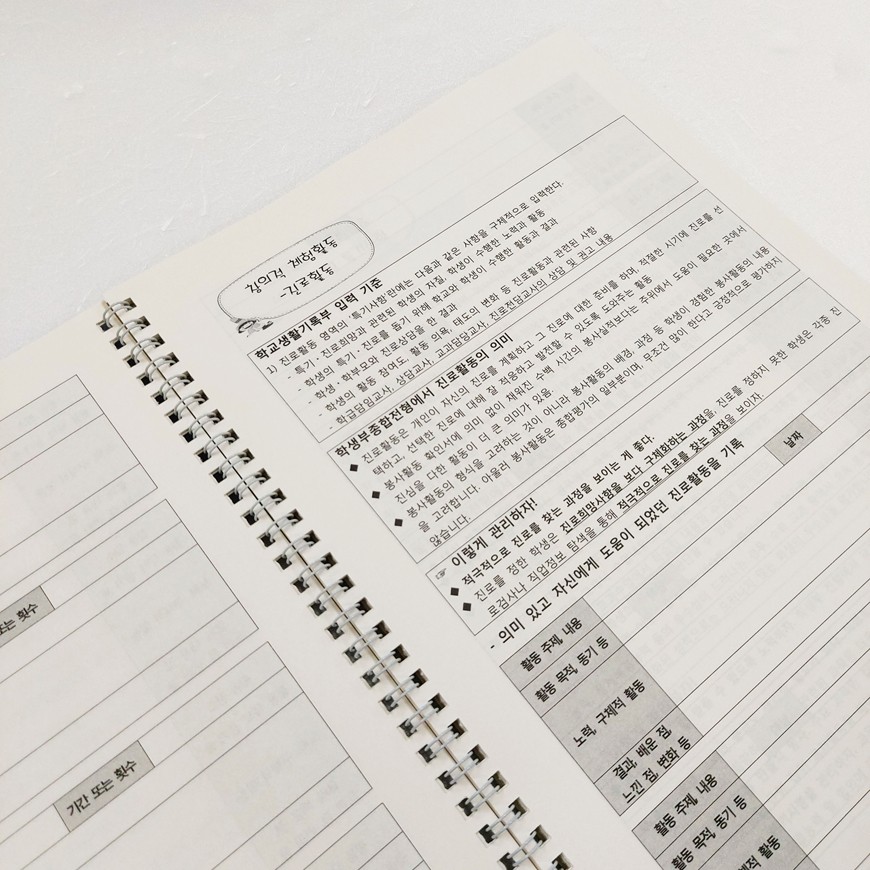 창의적 체험활동
-진로활동
학교생활기록부 입력 기준
1) 진로활동 영역의 '특기사항'란에는 다음과 같은 사항을 구체적으로 입력한다.
- 특기·진로희망과 관련된 학생의 자질, 학생이 수행한 노력과 활동
- 학생의 특기·진로를 돕기 위해 학교와 학생이 수행한 활동과 결과
- 학생·학부모와 진로상담을 한 결과
- 학생의 활동 참여도, 활동 의욕, 태도의 변화 등 진로활동과 관련된 사항
- 학급담임교사, 상담교사, 교과담당교사, 진로전담교사의 상담 및 권고 내용
학생부종합전형에서 진로활동의 의미
◆ 진로활동은 개인이 자신의 진로를 계획하고 그 진로에 대한 준비를 하며, 적절한 시기에 진로를 선
택하고, 선택한 진로에 대해 잘 적응하고 발전할 수 있도록 도와주는 활동
◆ 봉사활동 확인서에 의미 없이 채워진 수백 시간의 봉사실적보다는 주위에서 도움이 필요한 곳에서
진심을 다한 활동이 더 큰 의미가 있음.
◆ 봉사활동의 형식을 고려하는 것이 아니라 봉사활동의 배경, 과정 등 학생이 경험한 봉사활동의 내용
을 고려합니다. 아울러 봉사활동은 종합평가의 일부분이며, 무조건 많이 한다고 긍정적으로 평가하지
않습니다.
☞ 이렇게 관리하자!
◆ 적극적으로 진로를 찾는 과정을 보이는 게 좋다.
◆ 진로를 정한 학생은 진로희망사항을 보다 구체화하는 과정을, 진로를 정하지 못한 학생은 각종 진
로검사나 직업정보 탐색을 통해 적극적으로 진로를 찾는 과정을 보이자.
- 의미 있고 자신에게 도움이 되었던 진로활동을 기록
날짜
활동 주제, 내용
활동 목적, 동기 등
노력, 구체적 활동
결과, 배운 점,
느낀 점, 변화 등
활동 주제, 내용
활동 목적, 동기 등
또는 횟수
기간 또는 횟수